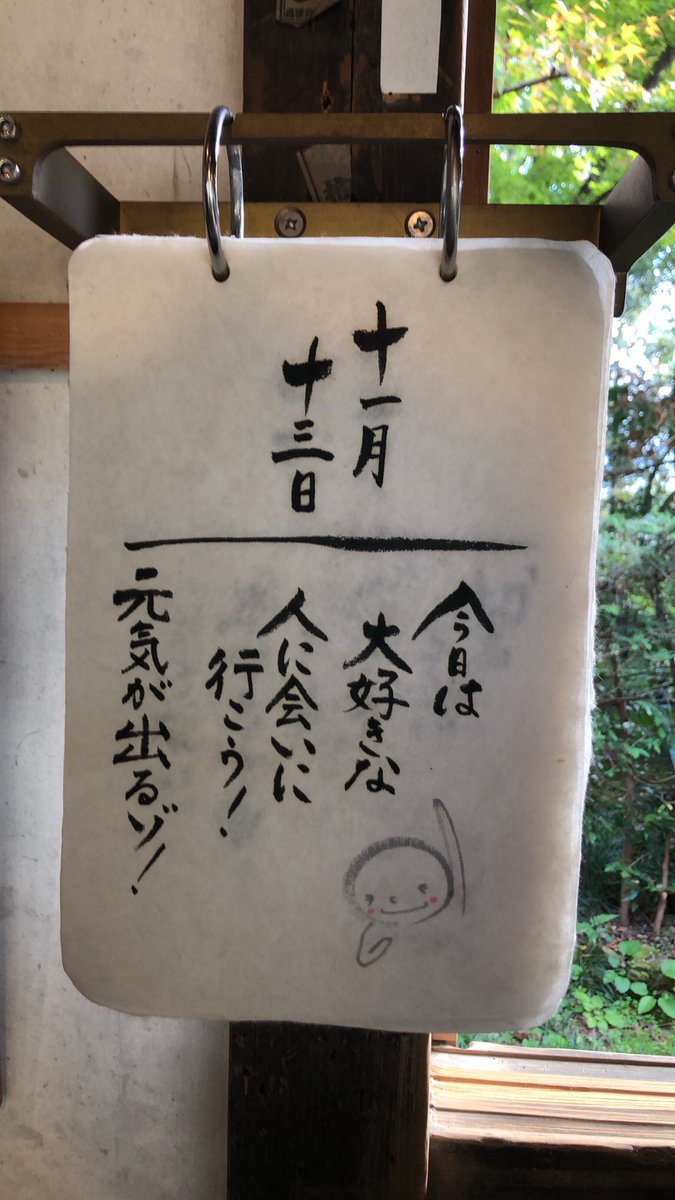 十一月
十三日
今日は
大好きな
人に会いに
行こう！
元気が出るゾ！